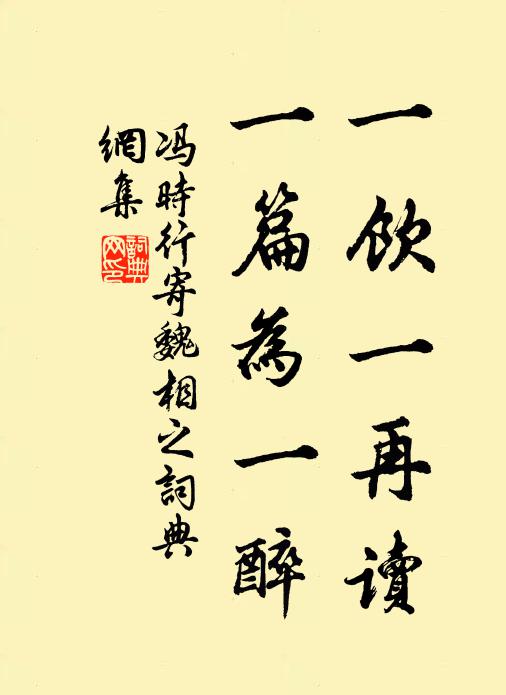 一飲一再讀
一篇為一醉
冯時行寄魏相之詞典
網集
詞典
网印